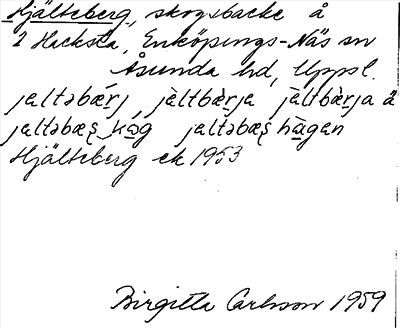 Hjälteberg, skogsbacke å
2 Hacksta, Enköpings-Näs sn
Åsunda hd, Uppl.
jaltəbærj jàltbærja jàltbærja ä
jaltəbæʂ kog jaltəbæʂ hagan
Hjälteberg ek 1953
Birgitta Carlsson 1959